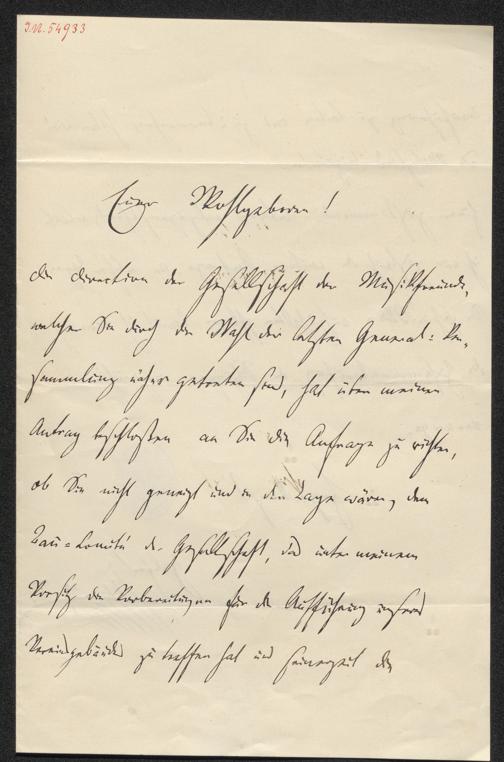 I.N. 54933
Euer Wohlgeboren!
die Direction der Gesellschaft der Musikfreunde,
welcher Sie durch die Wahl der letzten General=Ver-
sammlung näher getreten sind, hat über meinen
Antrag beschlossen an Sie die Anfrage zu richten,
ob Sie nicht geneigt und in der Lage wären, dem
Bau=Comité der Gesellschaft, das unter meinem
Vorsitz die Vorbereitungen für die Aufführung unseres
Vereinsgebäudes zu treffen hat und seinerzeit die